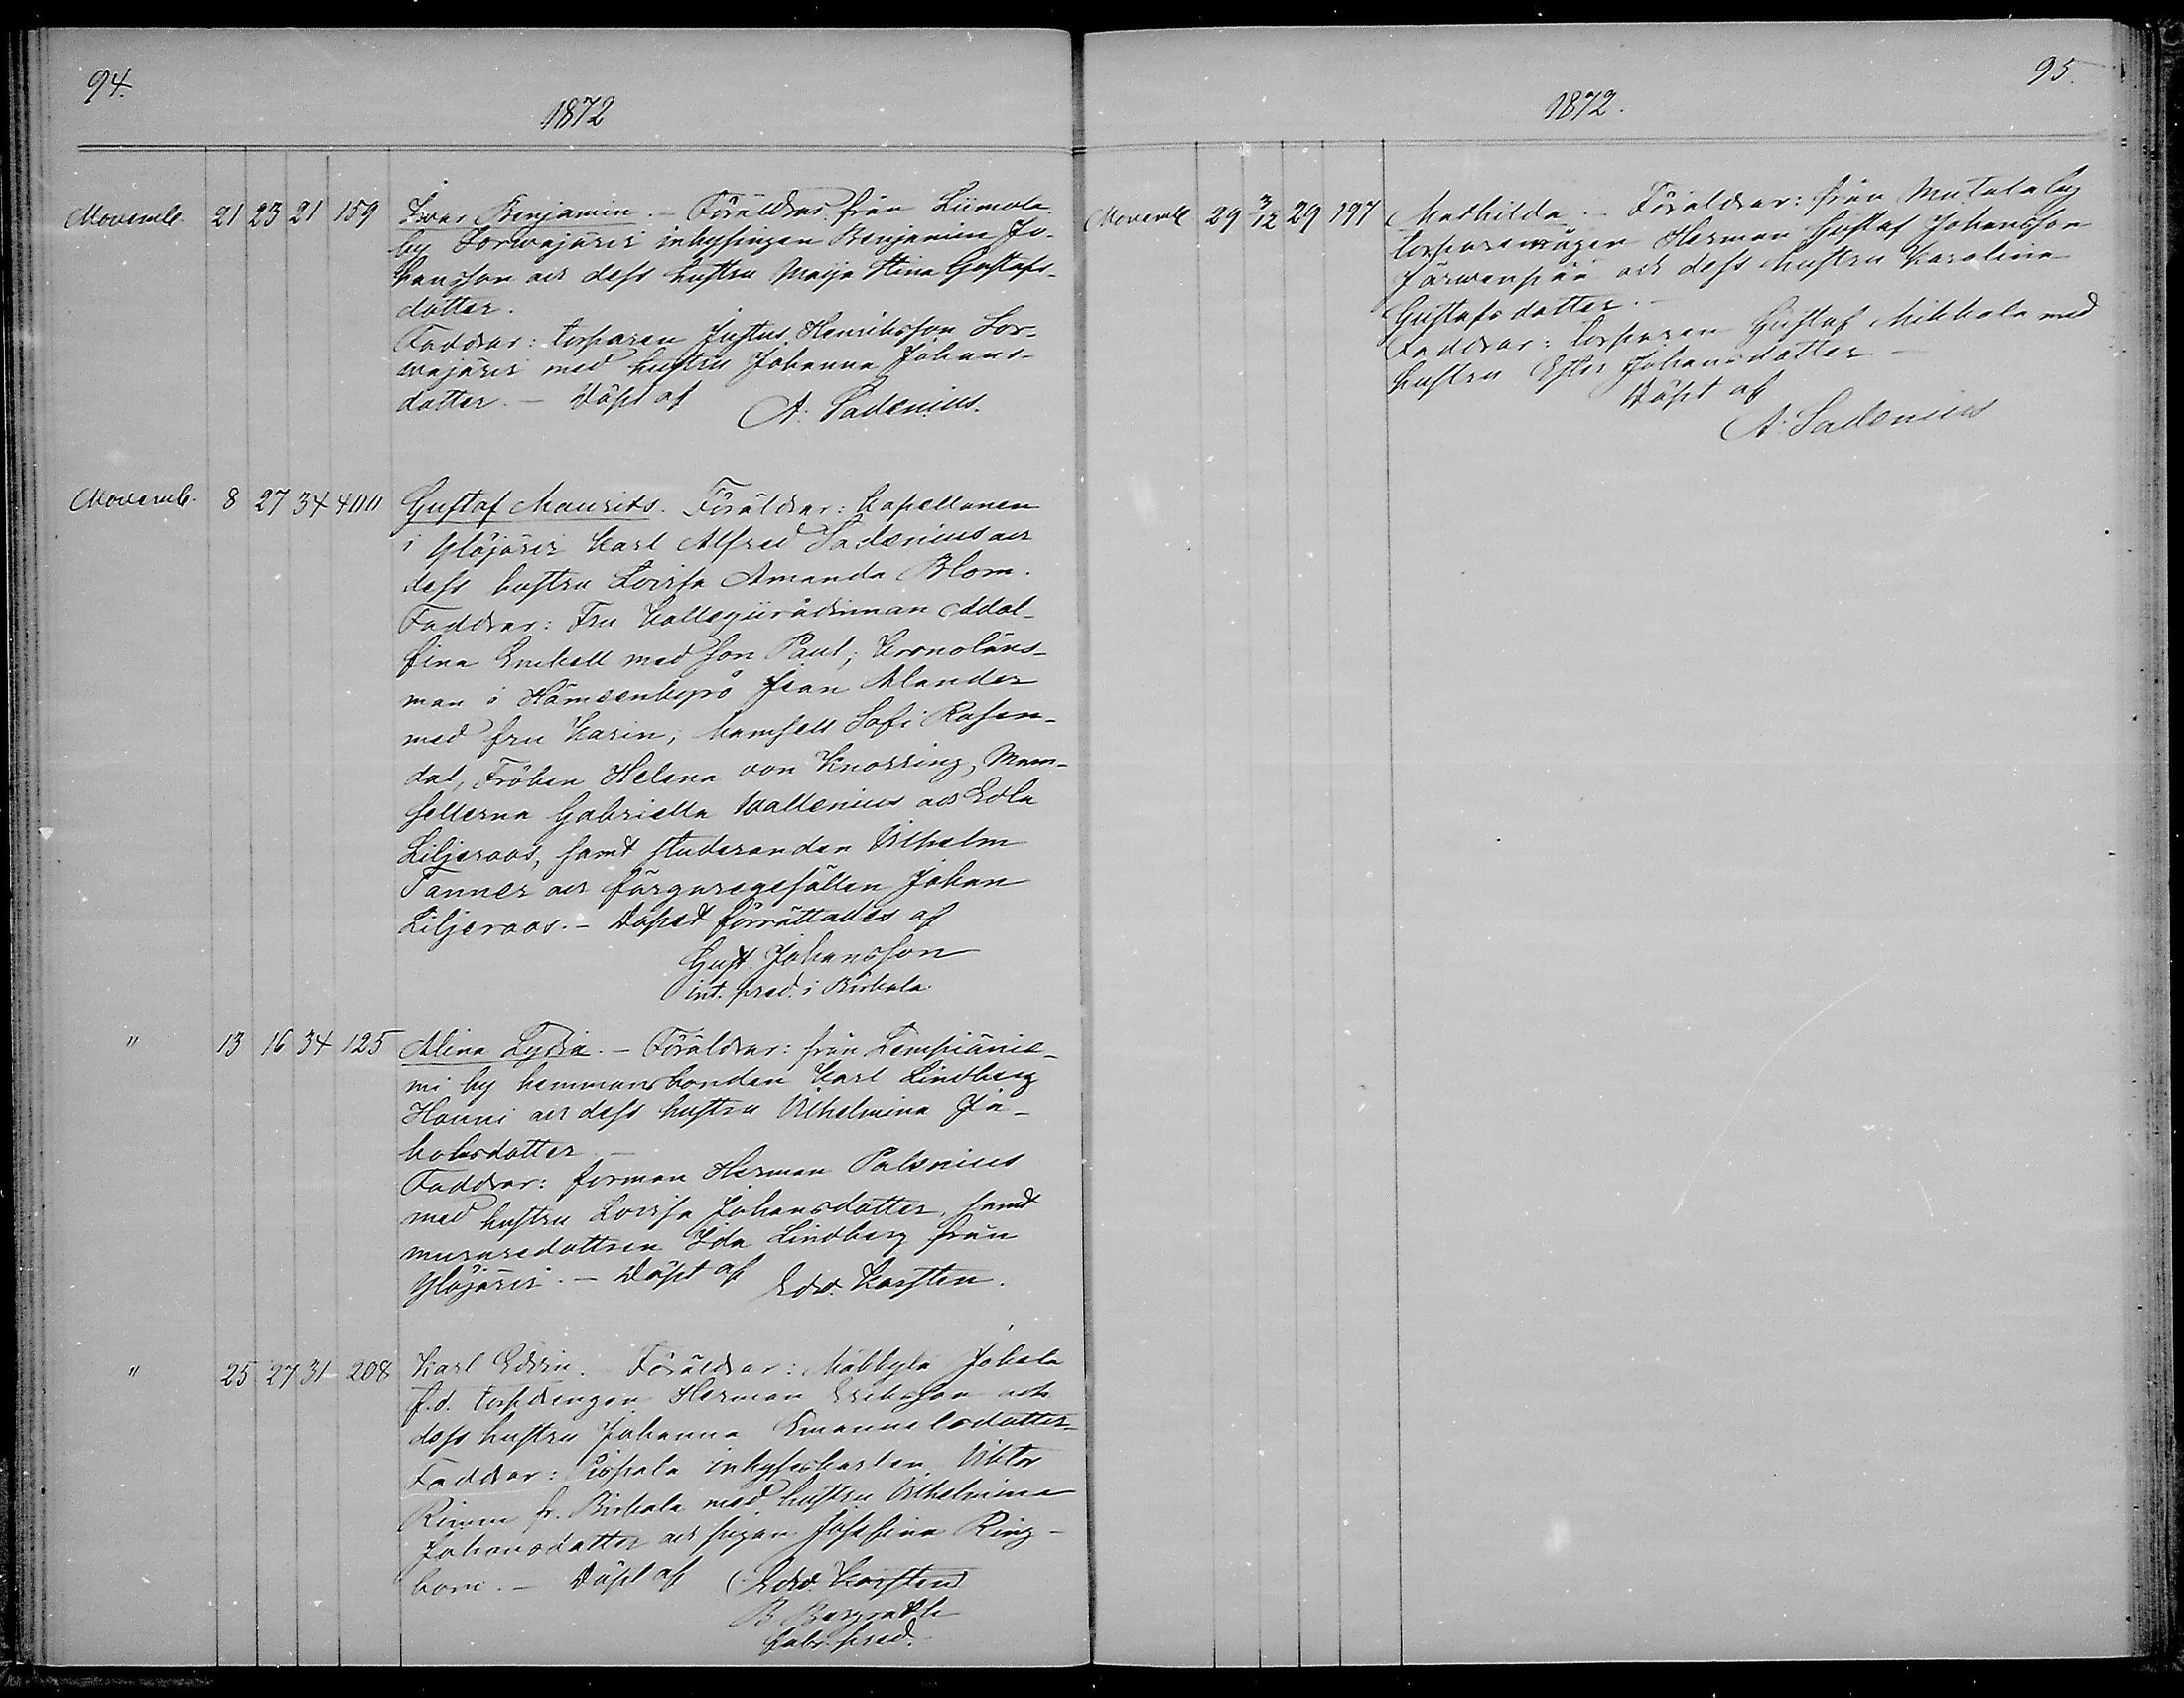 94.
1872
Novemb. 21 23 21 159 Ivar Benjamin. - Föräldrar från Liimola
by Sorvajärvi inhysingen Benjamin Jo-
hansson och dess hustru Maija Stina Gustafs-
dotter.
Faddrar: torparen Justus Henriksson Sor-
vajärvi med hustru Johanna Johans-
dotter. - Döpt af A. Sadenius.
Novemb. 8 27 34 400 Gustaf Maurits. Föräldrar: Kapellanen
i Ylöjärvi Karl Alfred Sadenius och
dess hustru Lovisa Amanda Blom.
Faddrar: Fru Kollegiirådinnan Adol-
fina Enckell med son Paul; Kronoläns-
man i Hämeenkyrö Jean Alander
med fru Karin; Mamsell Sofi Rosen-
dal, Fröken Helena von Knorring, Mam-
sellerna Gabriella Wallenius och Edla
Liljeroos, samt studeranden Vilhelm
Tanner och färgaregesällen Johan
Liljeroos. - Dopet förrättades af
Gust. Johansson
int. pred. i Birkala
" 13 16 34 125 Alina Lydia. - Föräldrar: från Lempiänie-
mi by hemmansbonden Karl Lindberg
Hanni och dess hustru Vilhelmina Ja-
kobsdotter -
Faddrar: forman Herman Palenius
med hustru Lovisa Johansdotter, samt
muraredottren Ida Lindberg från
Ylöjärvi. - Döpt af Edv. Karsten.
" 25 27 31 208 Karl Edvin. Föräldrar: Mäkkylä Jokela
f.d. torpdrengen Herman Eriksson och
dess hustru Johanna Emanuelsdotter -
Faddrar: Pispala inhyseskarlen Viktor
fr. Birkala med hustru Vilhelmina
Johansdotter och pigan Josefina Ring-
bom. - Döpt af (Edvd. Karsten)
B
pred.
95.
1872.
Novemb 29 3/12 29 197 Mathilda. - Föräldrar: från Mutala by
Herman Gustaf Johansson
Järvenpää och dess hustru Karolina
Gustafsdotter. -
Faddrar: torparen Gustaf Mikkola med
hustru Ester Johansdotter -
Döpt af
A. Sadenius